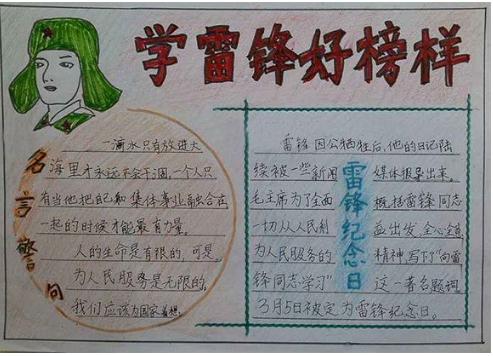 学雷锋好榜样
名言警句
一滴水只有放进大
海里才永远不会干涸,一个人只
有当他把自己和集体事业融合在
一起的时候才能最有力量。
人的生命是有限的,可是,
为人民服务是无限的,
我们应该为国家着想。
雷锋纪念日
雷锋因公牺牲后,他的日记陆
续被一些新闻媒体报导出来。
毛主席为了全面概括雷锋同志
一切从人民利益出发,全心全意
为人民服务的精神,写下了“向雷
锋同志学习”这一著名题词。
3月5日被定为雷锋纪念日。